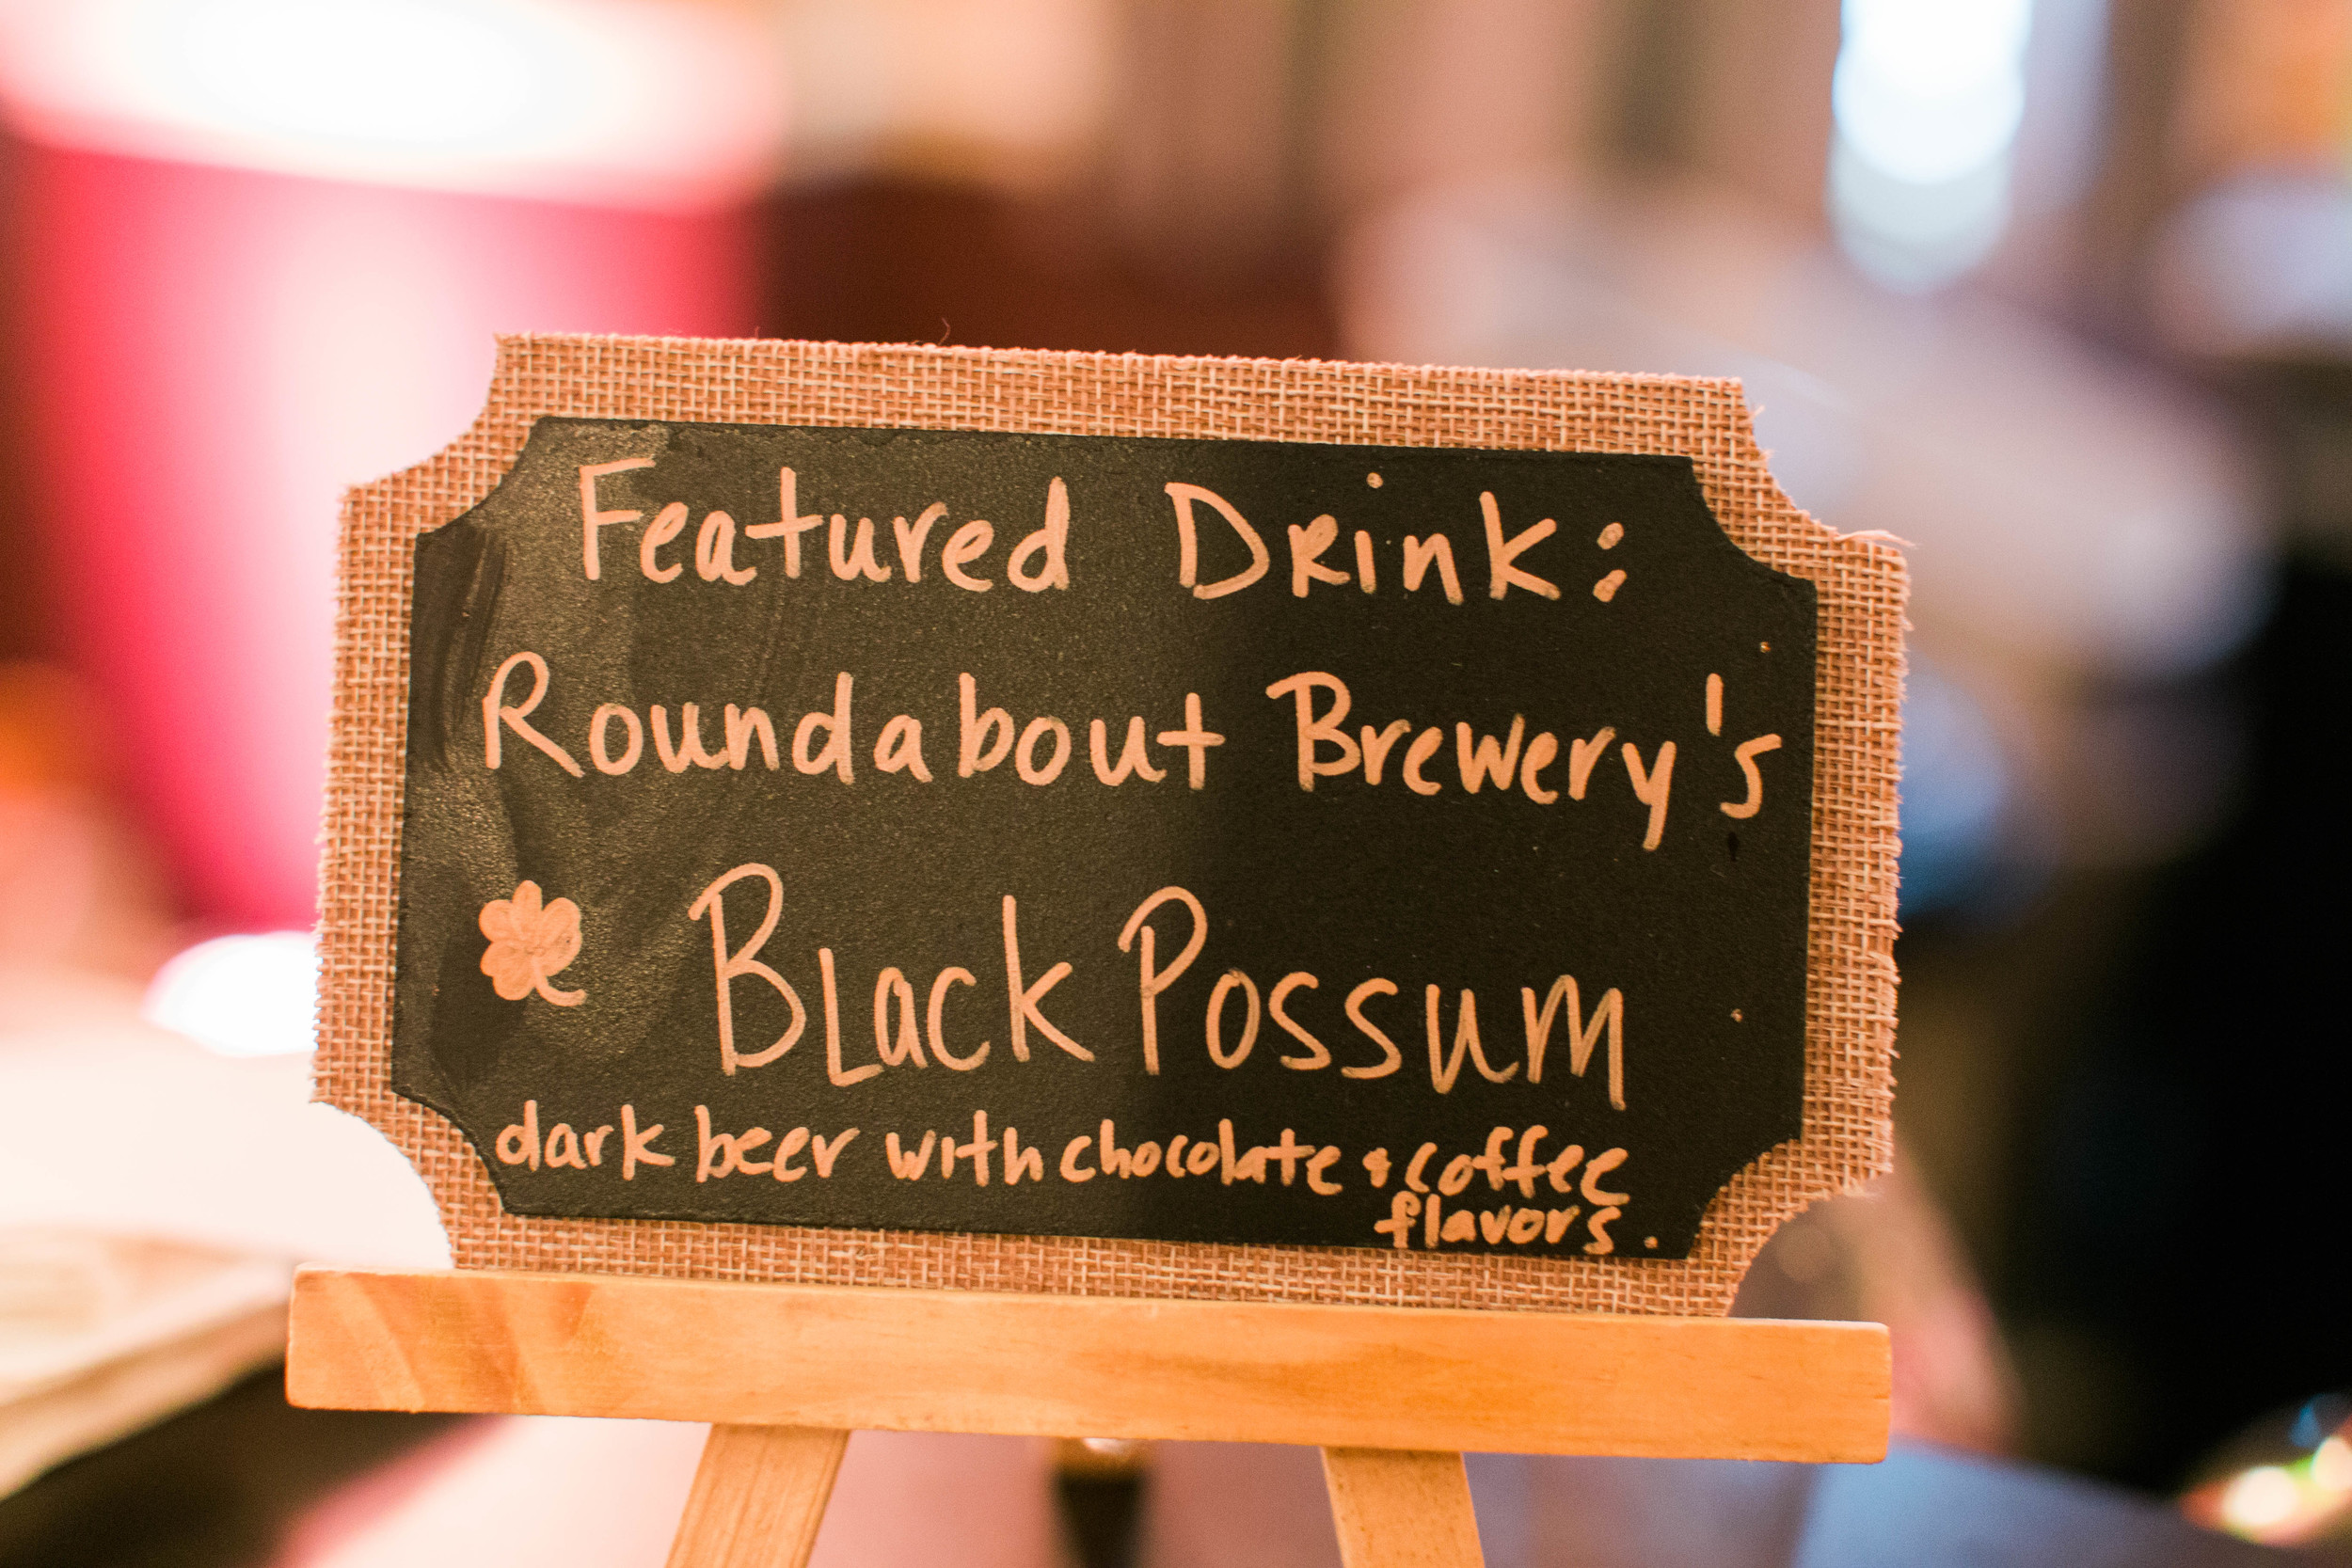 Featured Drink:
Roundabout Brewery's
Black Possum
dark beer with chocolate & coffee
flavors.